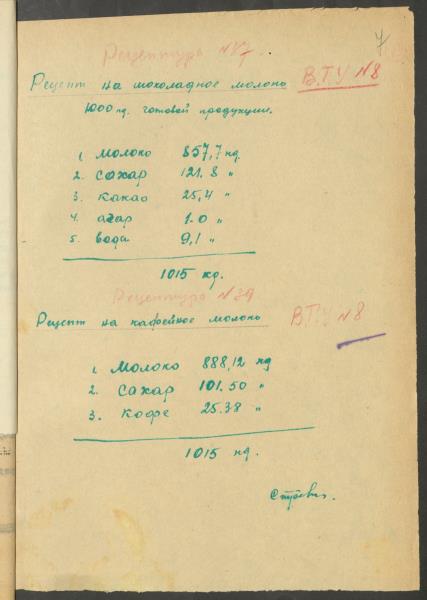 7
Рецептура №7.
Рецепт на шоколадное молоко В.Т.У №8
1000 кд. готовой продукции.
1. Молоко 857,7 кд.
2. Сахар 121.8 "
3. Какао 25,4 "
4. агар 1.0 "
5. вода 9,1 "
1015 кд.
Рецептура №39
Рецепт на кафейное молоко В.Т.У №8
1. Молоко 888,12 кд
2. Сахар 101.50 "
3. Кофе 25.38 "
1015 кд.